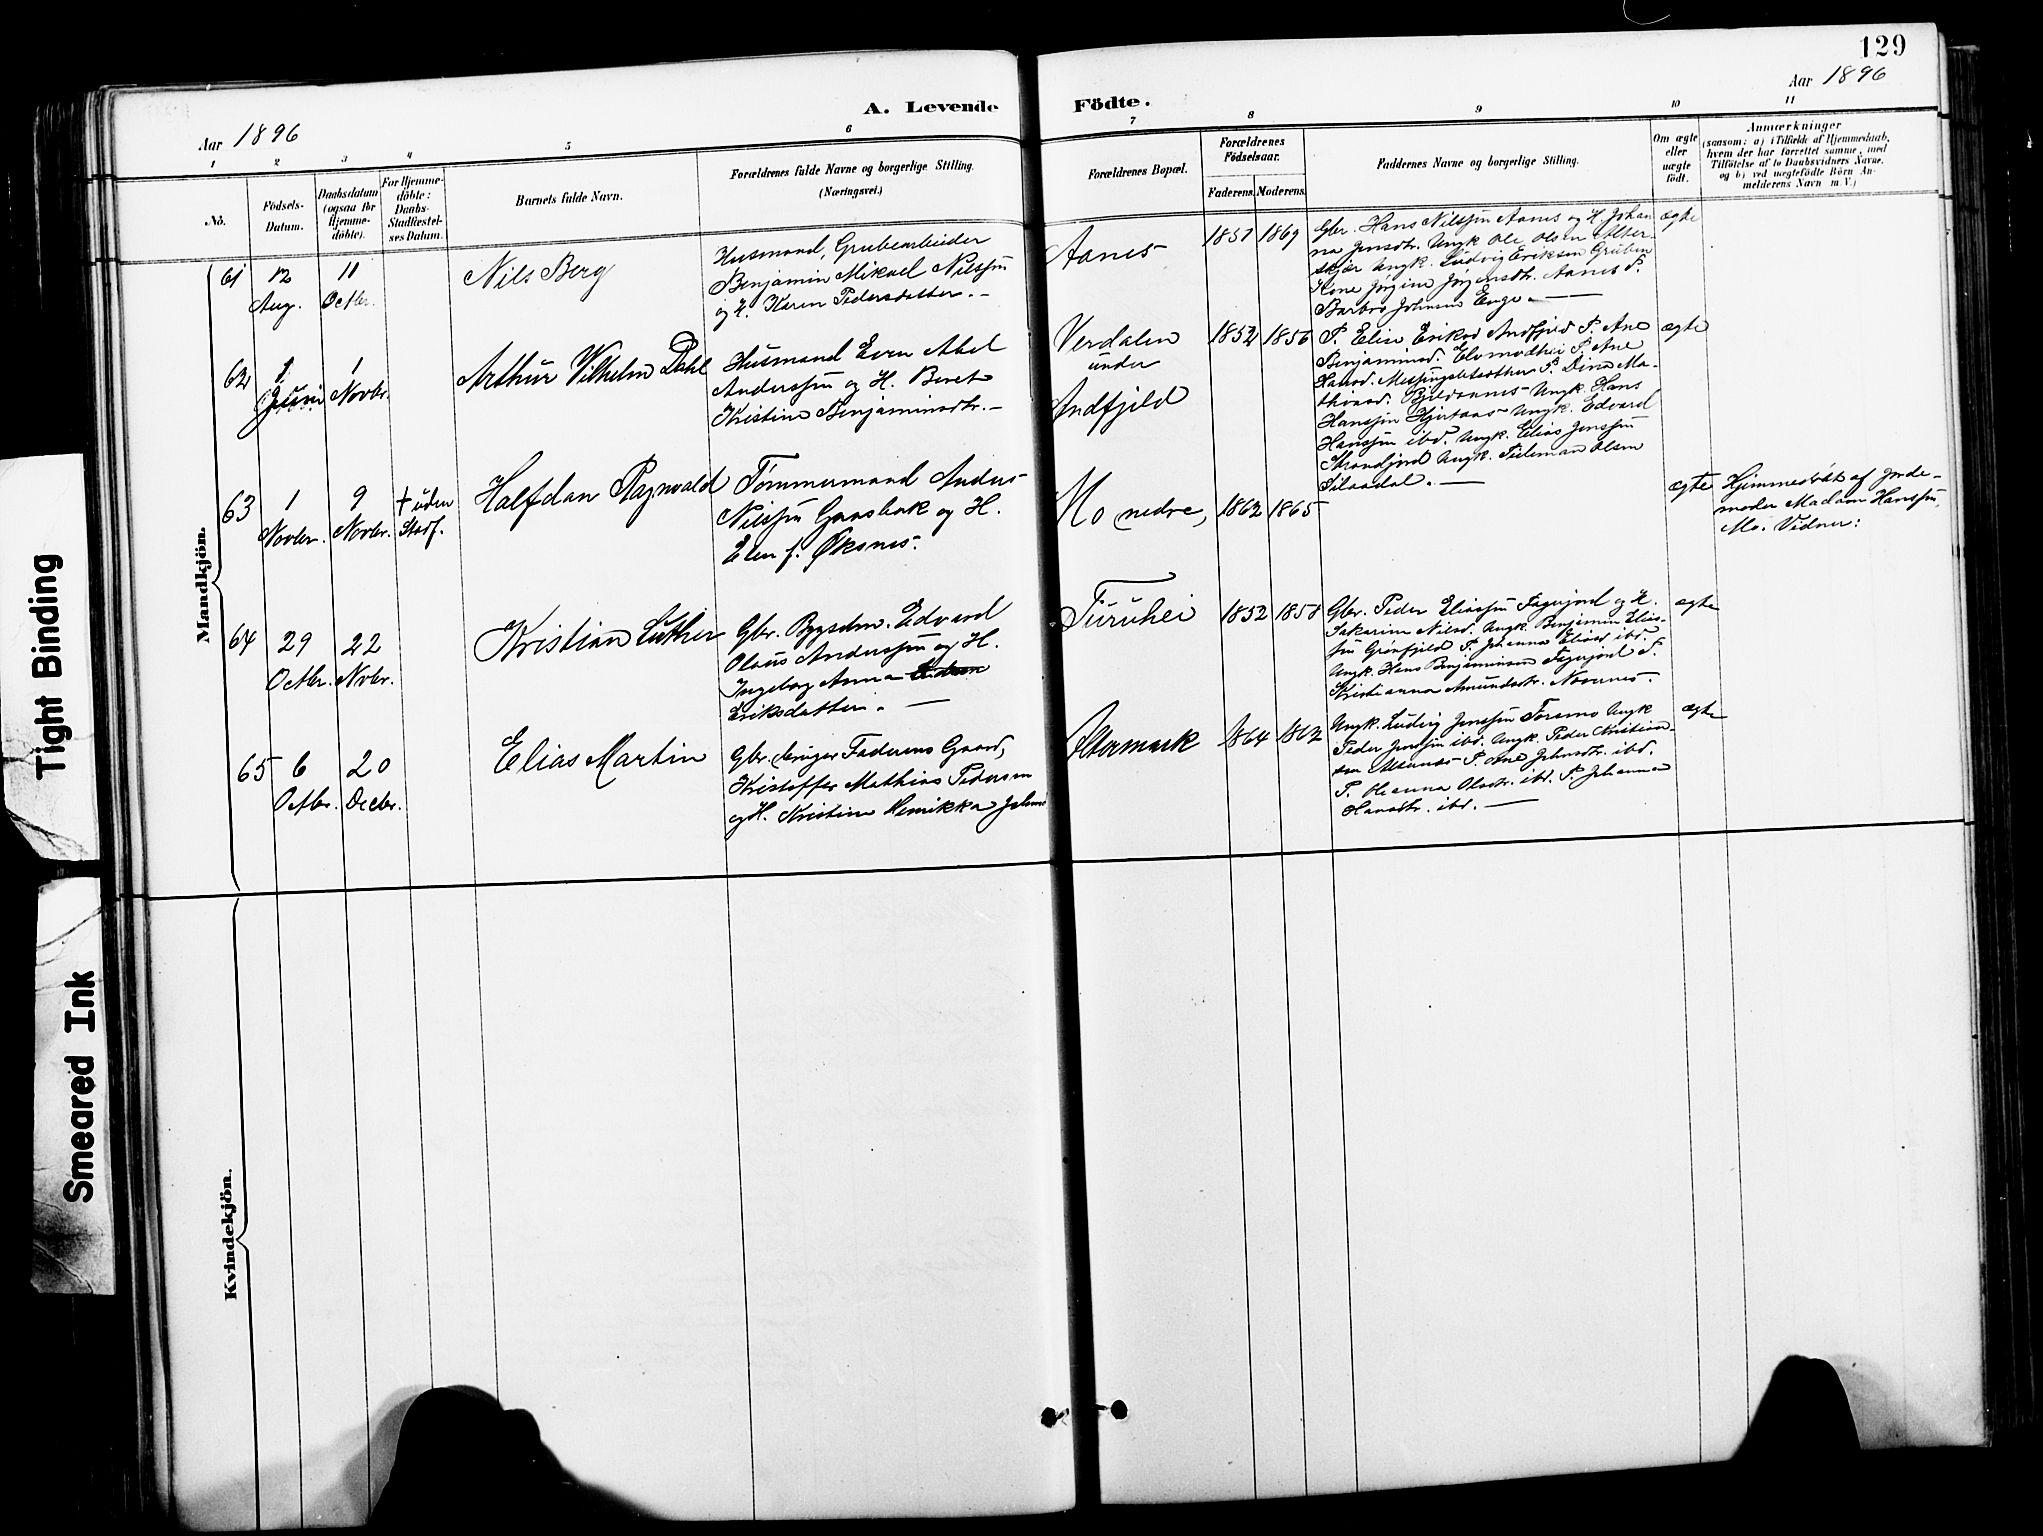 129
Aar 1896
Aar 1896
A. Levende Födte.
1 2 3 4 5 6 7 8 9 10 11
No.
Födsels-
Datum.
Daabsdatum
(ogsaa for
Hjemme-
döbte).
For Hjemme-
döbte:
Daabs-
Stadfæstel-
ses Datum.
Barnets fulde Navn.
Forældrenes fulde Navne og borgerlige Stilling.
(Næringsvei.)
Forældrenes Bopæl.
Forældrenes
Födselsaar.
Faderens. Moderens.
Faddernes Navne og borgerlige Stilling.
Om ægte
eller
uægte
födt.
Anmærkninger
(saasom: a) i Tilfælde af Hjemmedaab,
hvem der har forrettet samme, med
Tilföielse af to Daabsvidners Navne,
og b) ved uægtefödte Börn An-
melderens Navn m. V.)
Mandkjön.
61
12
Aug.
11
Octbr.
Nils Berg
Husmand, Grubearbeider
Benjamin Mikael Nilssøn
og H. Karen Pedersdatter. —
Aanes
1857 1869
Gbr. Hans Nilssøn Aanes og H. Johan
na Jensdtr. Ungk Ole Olsen Alter
skjær Ungk. Ludvig Eriksen Gruben
Kone Jørgine Jørgensdtr. Aanes P.
Barbro Johnsen Enge. —
ægte
62
1
Juni
1
Novbr.
Arthur Vilhelm Dahl
Husmand Even Abel
Anderssøn og H. Beret
Kristine Benjaminsdtr. —
Verdalen
under
Andfjeld
1852 1856
P. Elise Eriksd Andfjeld P. Ane
Benjaminsd. P. Ane
Hansd. P. Dina Ma-
thiasd. Ungk. Hans
Hanssøn Ungk. Edvard
Hanssøn ibd. Ungk. Elias Jenssøn
Strandjord Ungk. Tideman Olsen
ægte
63
1
Novbr.
9
Novbr.
† uden
Stadf.
Halfdan Ragnvald
Tømmermand Anders
Nilssøn Gaasbak og H.
Elen f. Øksnes.
Mo nedre,
1862 1865
ægte
Hjemmedøbt af Jorde-
moder Madam Hanssøn,
Mo. Vidner:
64
29
Octbr.
22
Novbr.
Kristian Luther
Gbr. Bygsdm. Edvard
Olaus Anderssøn og H.
Ingeborg Anna
Eriksdatter. —
Turuhei
1852 1858
Gbr. Peder Eliassøn Fagerjord og H.
Sakarine Nilsd. Ungk Benjamin Elias-
søn Grønfjeld P. Johanna Eliasd ibd.
Ungk. Hans Benjaminsen Fagerjord P.
Kristianna Amundsdtr. Nævernes.
ægte
65
6
Octbr.
20
Decbr.
Elias Martin
Gbr. bruger Faderens Gaard,
Kristoffer Mathias Pedersen
og H. Kristine Henrikka Johns
Altermark
1864 1862
Ungk. Ludvig Jenssøn Forsmo Ungk
Peder Jenssøn ibd. Ungk. Peder Kristian-
sen P. Ane Johnsdtr. ibd.
P. Oleanna Olsdtr. ibd. P. Johanna
Hansdtr. ibd. —
ægte
Kvindekjön.
Tight Binding
Smeared Ink